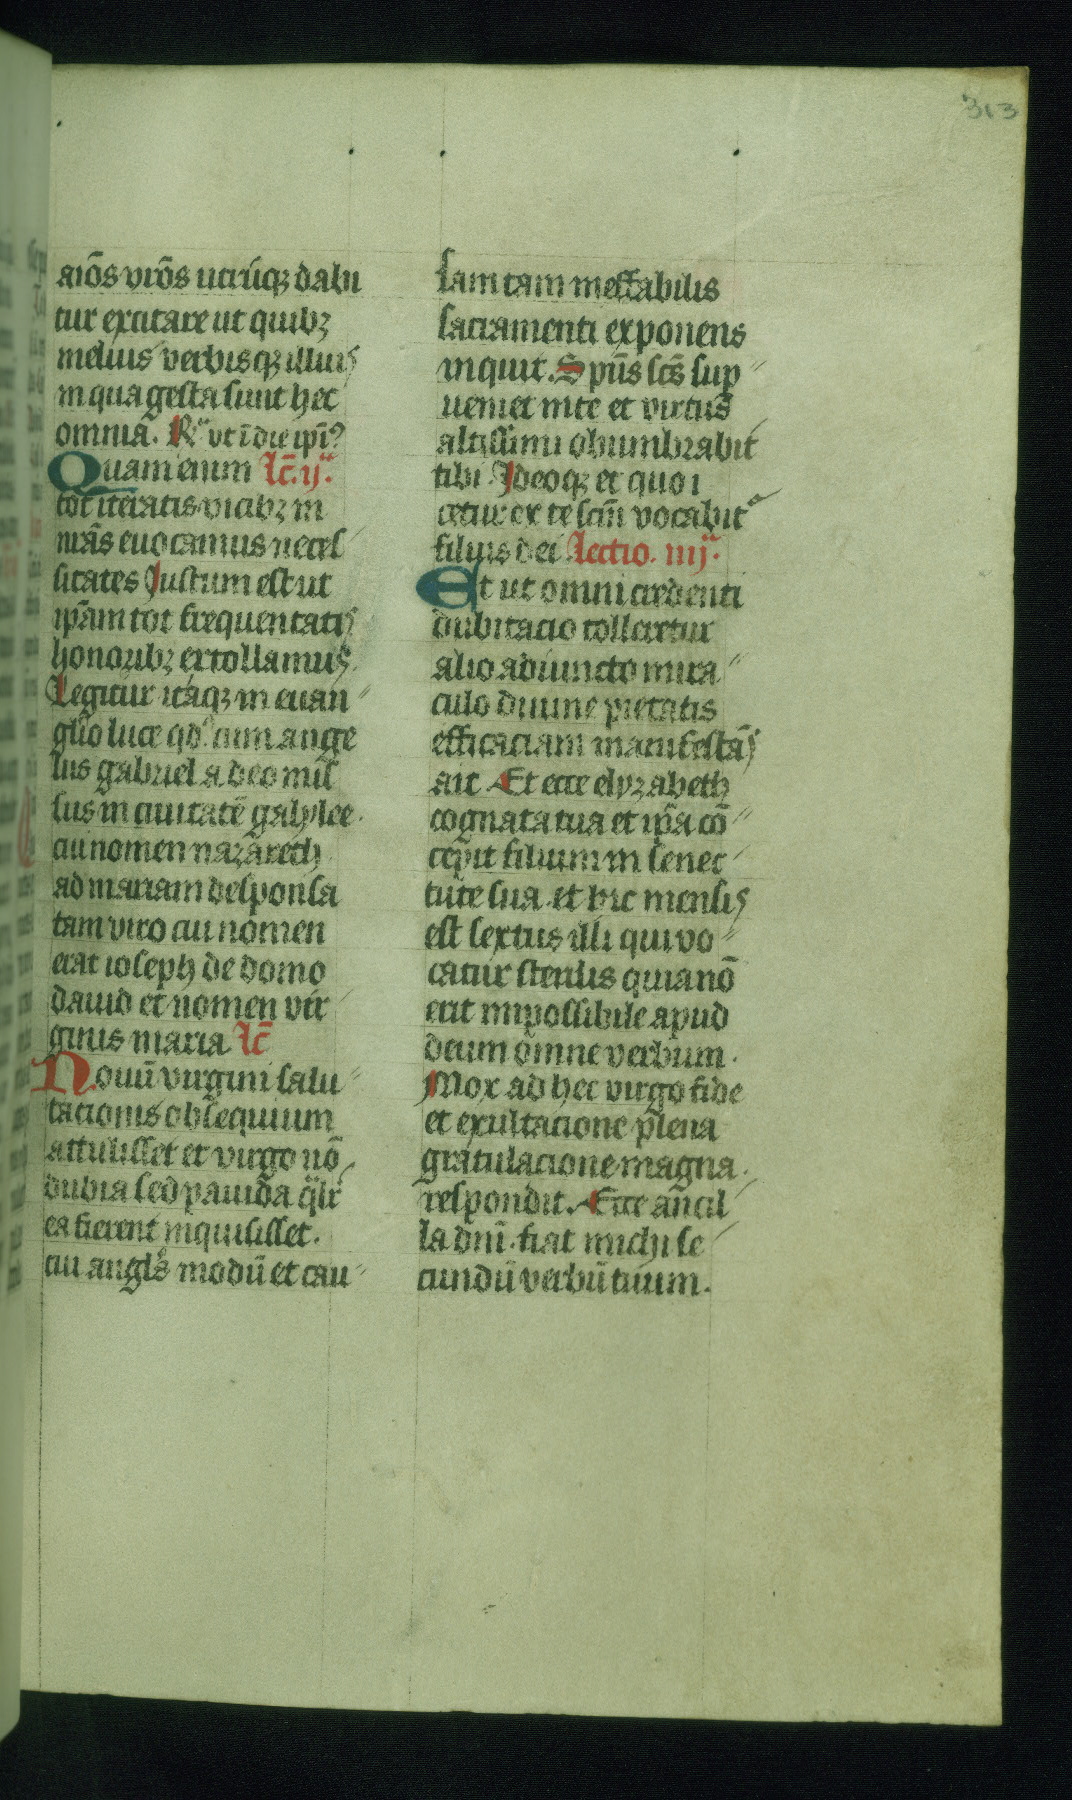 313
aīōs vrōs utrūq; dabi
tur excitare ut quib;
melius verbisq; illius
in qua gesta sunt hec
omnia. R vt ī die ipī?
Quam enim lc̄. ij.
tot iteratis vicib; in
nrās euocamus neces
sitates Iustum est ut
ipām tot frequentatis
honorib; extollamus.
Legitur itaq; in euan
glīo luce qd cum ange
lus gabriel a deo mis
sus in ciuitatē galylee.
cui nomen nazareth
ad mariam desponsa
tam viro cui nomen
erat ioseph de domo
dauid et nomen vir
ginis maria lc̄
Nouū virgini salu
tacionis obsequium
attulisset et virgo nō
dubia sed pauida qlr
ea fierent inquisisset.
cui angls modū et cau
sam tam ineffabilis
sacramenti exponens
inquit. Spūs scs sup
ueniet in te et virtus
altissimi obumbrabit
tibi Ideoq; et quo
cetur ex te scm̄ vocabit
filius dei lectio. iiij.
Et ut omni credenti
dubitacio tolleretur
alio adiuncto mira
culo diuine pietatis
efficaciam manifestās
ait Et ecce elyzabeth
cognata tua et ipā cō
cepit filium in senec
tute sua et hic mensis
est sextus illi qui vo
catur sterilis quia nō
erit impossibile apud
deum omne verbum.
Mox ad hec virgo fide
et exultacione plena
gratulacione magna.
respondit. Ecce ancil
la dnī fiat michi se
cundū verbū tuum.